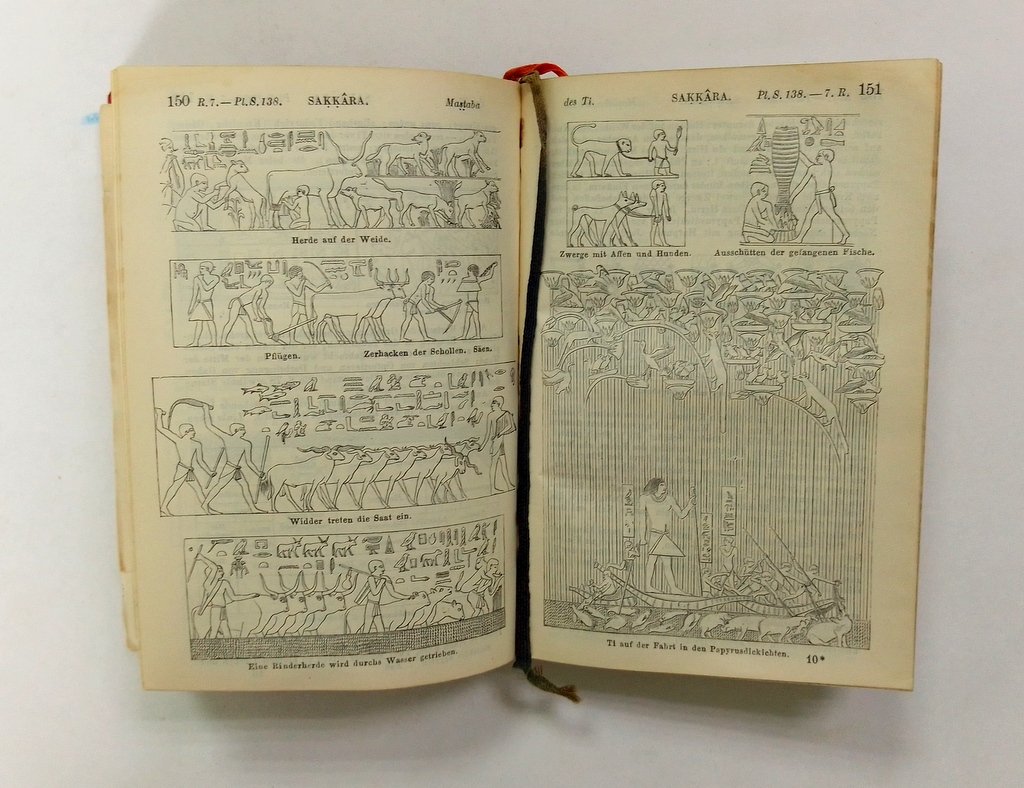 150 R. 7. — Pl. S. 138. SAḲḲÂRA. Maṣṭaba
Herde auf der Weide.
Pflügen. Zerhacken der Schollen. Säen.
Widder treten die Saat ein.
Eine Rinderherde wird durchs Wasser getrieben.
des Ti. SAḲḲÂRA. Pl. S. 138. — 7. R. 151
Zwerge mit Affen und Hunden. Ausschütten der gefangenen Fische.
Ti auf der Fahrt in den Papyrusdickichten.
10*